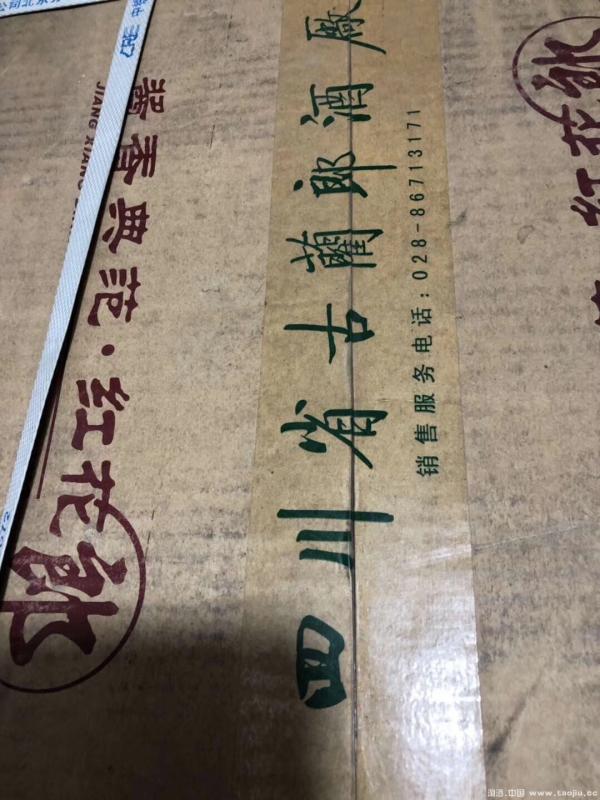 酱香典范·红花郎
JIANG XIANG
四川省古蔺郎酒厰
销售服务电话：028-86713171
红花郎
淘酒.中国 www.taojiu.cc